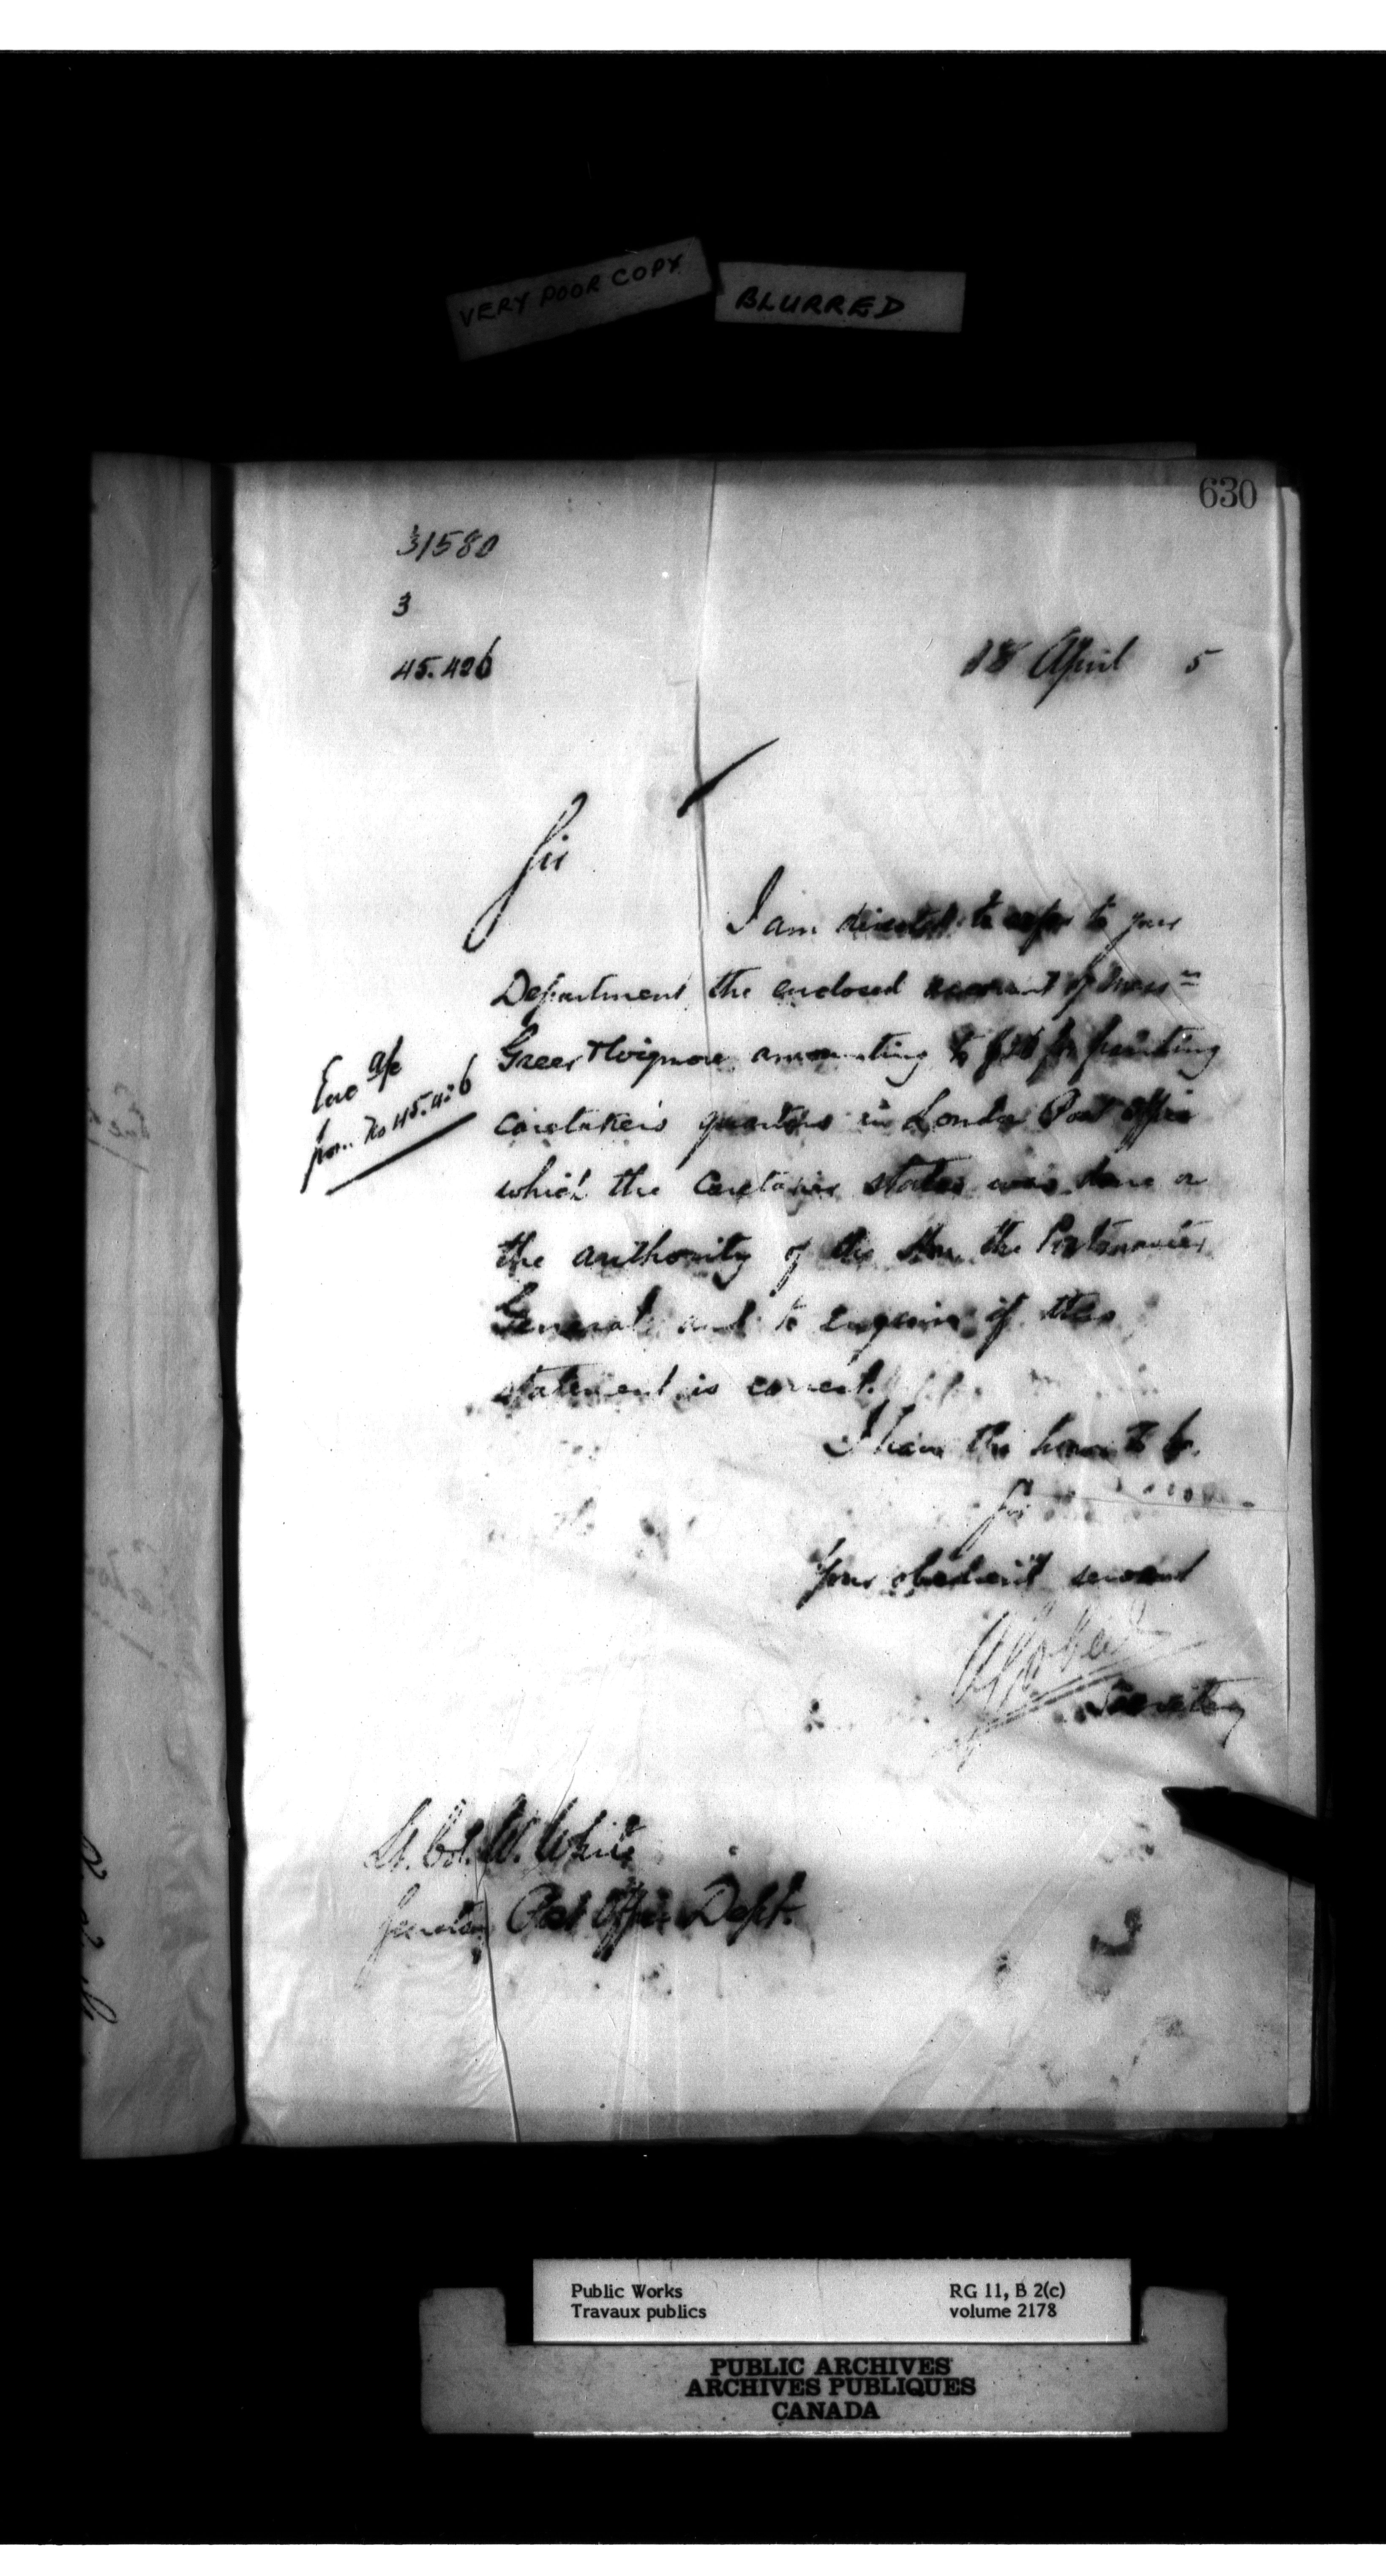 VERY POOR COPY
BLURRED
630
31580
3
45.426
18 April 5
Sir
I am directed to refer to your
Department the enclosed account of Mess=
Greer & Wigmore amounting to for painting
caretaker's quarters in London Post Office
which the Caretaker states was done on
the authority of the Hon. the Postmaster
General and to enquire if this
statement is correct.
Enc a/c
from No 45.426
I have the honor to be,
Sir
Your obedient servant
Secretary
Lt. Col. W. White
Secretary Post Office Dept.
Public Works
Travaux publics
RG 11, B 2(c)
volume 2178
PUBLIC ARCHIVES
ARCHIVES PUBLIQUES
CANADA